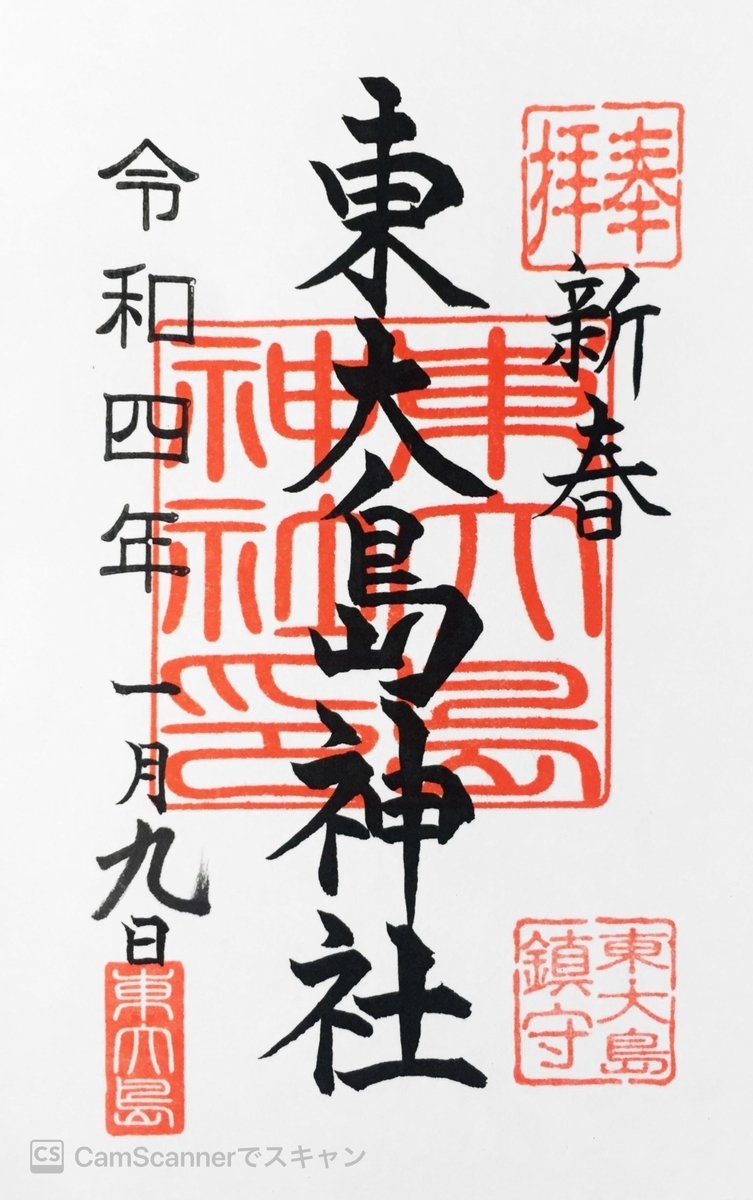 奉拝
新春
東大島神社
東大島神社印
東大島
鎮守
令和四年一月九日
東大島
CS CamScannerでスキャン